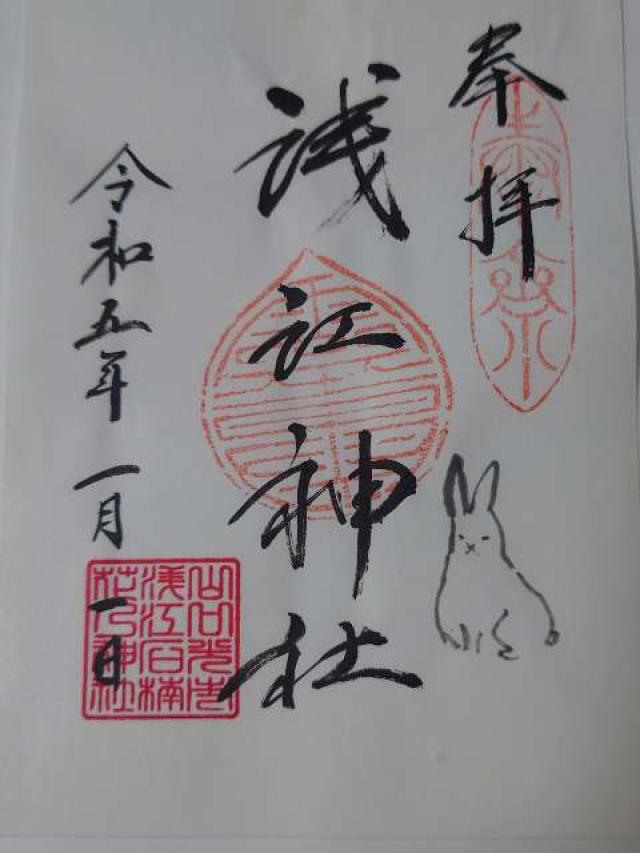 奉拝
浅江神社
令和五年一月一日
山口光市
浅江石楠
神社